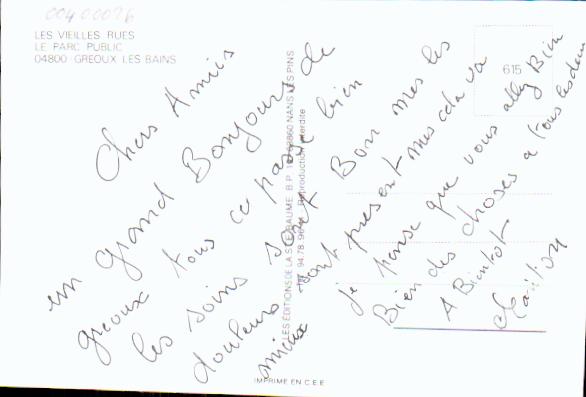 00400026
LES VIEILLES RUES
LE PARC PUBLIC
04800 GREOUX LES BAINS
615
Chers Amis
un grand Bonjour de
greoux tous ce passe bien
les soins sont Bon mes les
douleurs sont present mes cela va
mieux je pense que vous allez Bien
Bien des choses a tous les deux
A Bientot
LES ÉDITIONS DE LA STE-BAUME B.P. 83860 NANS LES PINS
94.78. Reproduction interdite
IMPRIME EN C.E.E